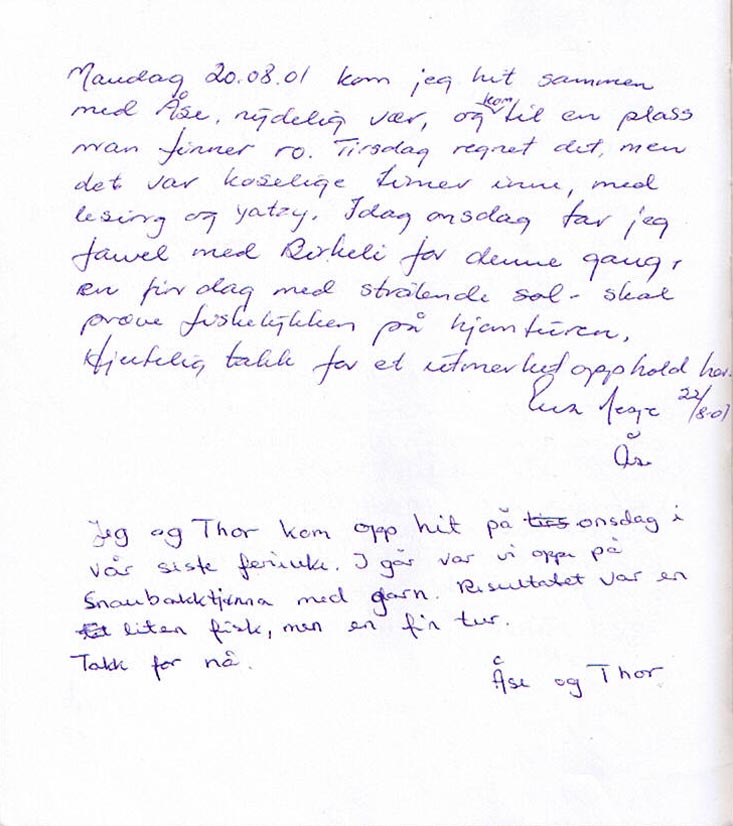 Mandag 20.08.01 kom jeg hit sammen
med Åse, nydelig vær, og kom til en plass
man finner ro. Tirsdag regnet det, men
det var koselige timer inne, med
lesing og yatzy. Idag onsdag tar jeg
farvel med Birkeli for denne gang,
en fin dag med strålende sol - skal
prøve fiskelykken på hjemturen.
Hjertelig takk for et utmerket opphold her.
22/8-01
Åse
Jeg og Thor kom opp hit på tirs onsdag i
vår siste ferieuke. I går var vi oppe på
Snaubakktjønna med garn. Resultatet var en
liten fisk, men en fin tur.
Takk for nå.
Åse og Thor